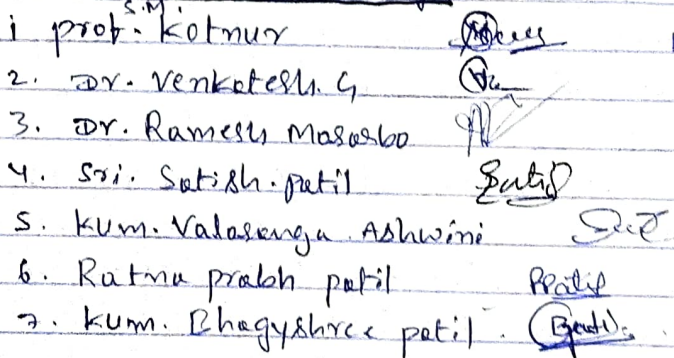 S.M
1 prof. Kotnur
2. Dr. Venkatesh. G
3. Dr. Ramesh Masarbo
4. Sri. Satish. patil Satish
5. Kum. Valasanga Ashwini
6. Ratna prabh patil PPatil
7. Kum. Bhagyshree patil.